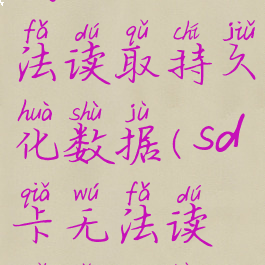 fǎ dú qǔ chí jiǔ
法读取持久
huà shù jù
化数据(sd
qiǎ wú fǎ dú
卡无法读